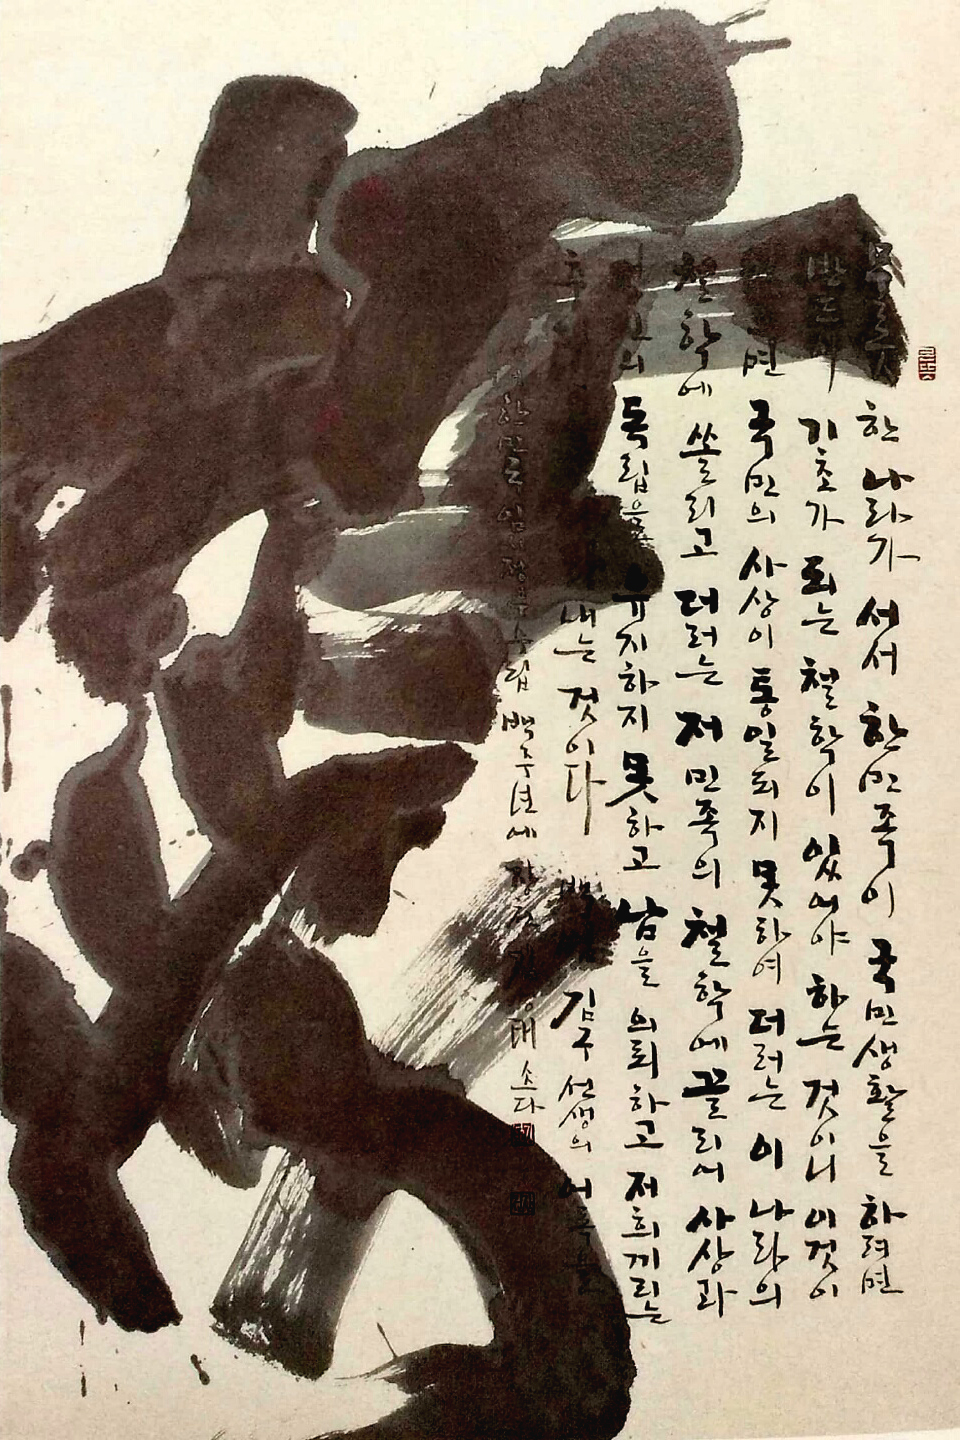 무릇 한 나라가 서서 한 민족이 국민생활을 하려면
반드시 기초가 되는 철학이 있어야 하는 것이니 이것이
없으면 국민의 사상이 통일되지 못하여 더러는 이 나라의
철학에 쏠리고 더러는 저 민족의 철학에 끌리어 사상과
정신의 독립을 유지하지 못하고 남을 의뢰하고 저희끼리는
추태를 나타내는 것이다 백범 김구 선생의 어록을
대한민국 임시정부 수립 백주년에 쓰다